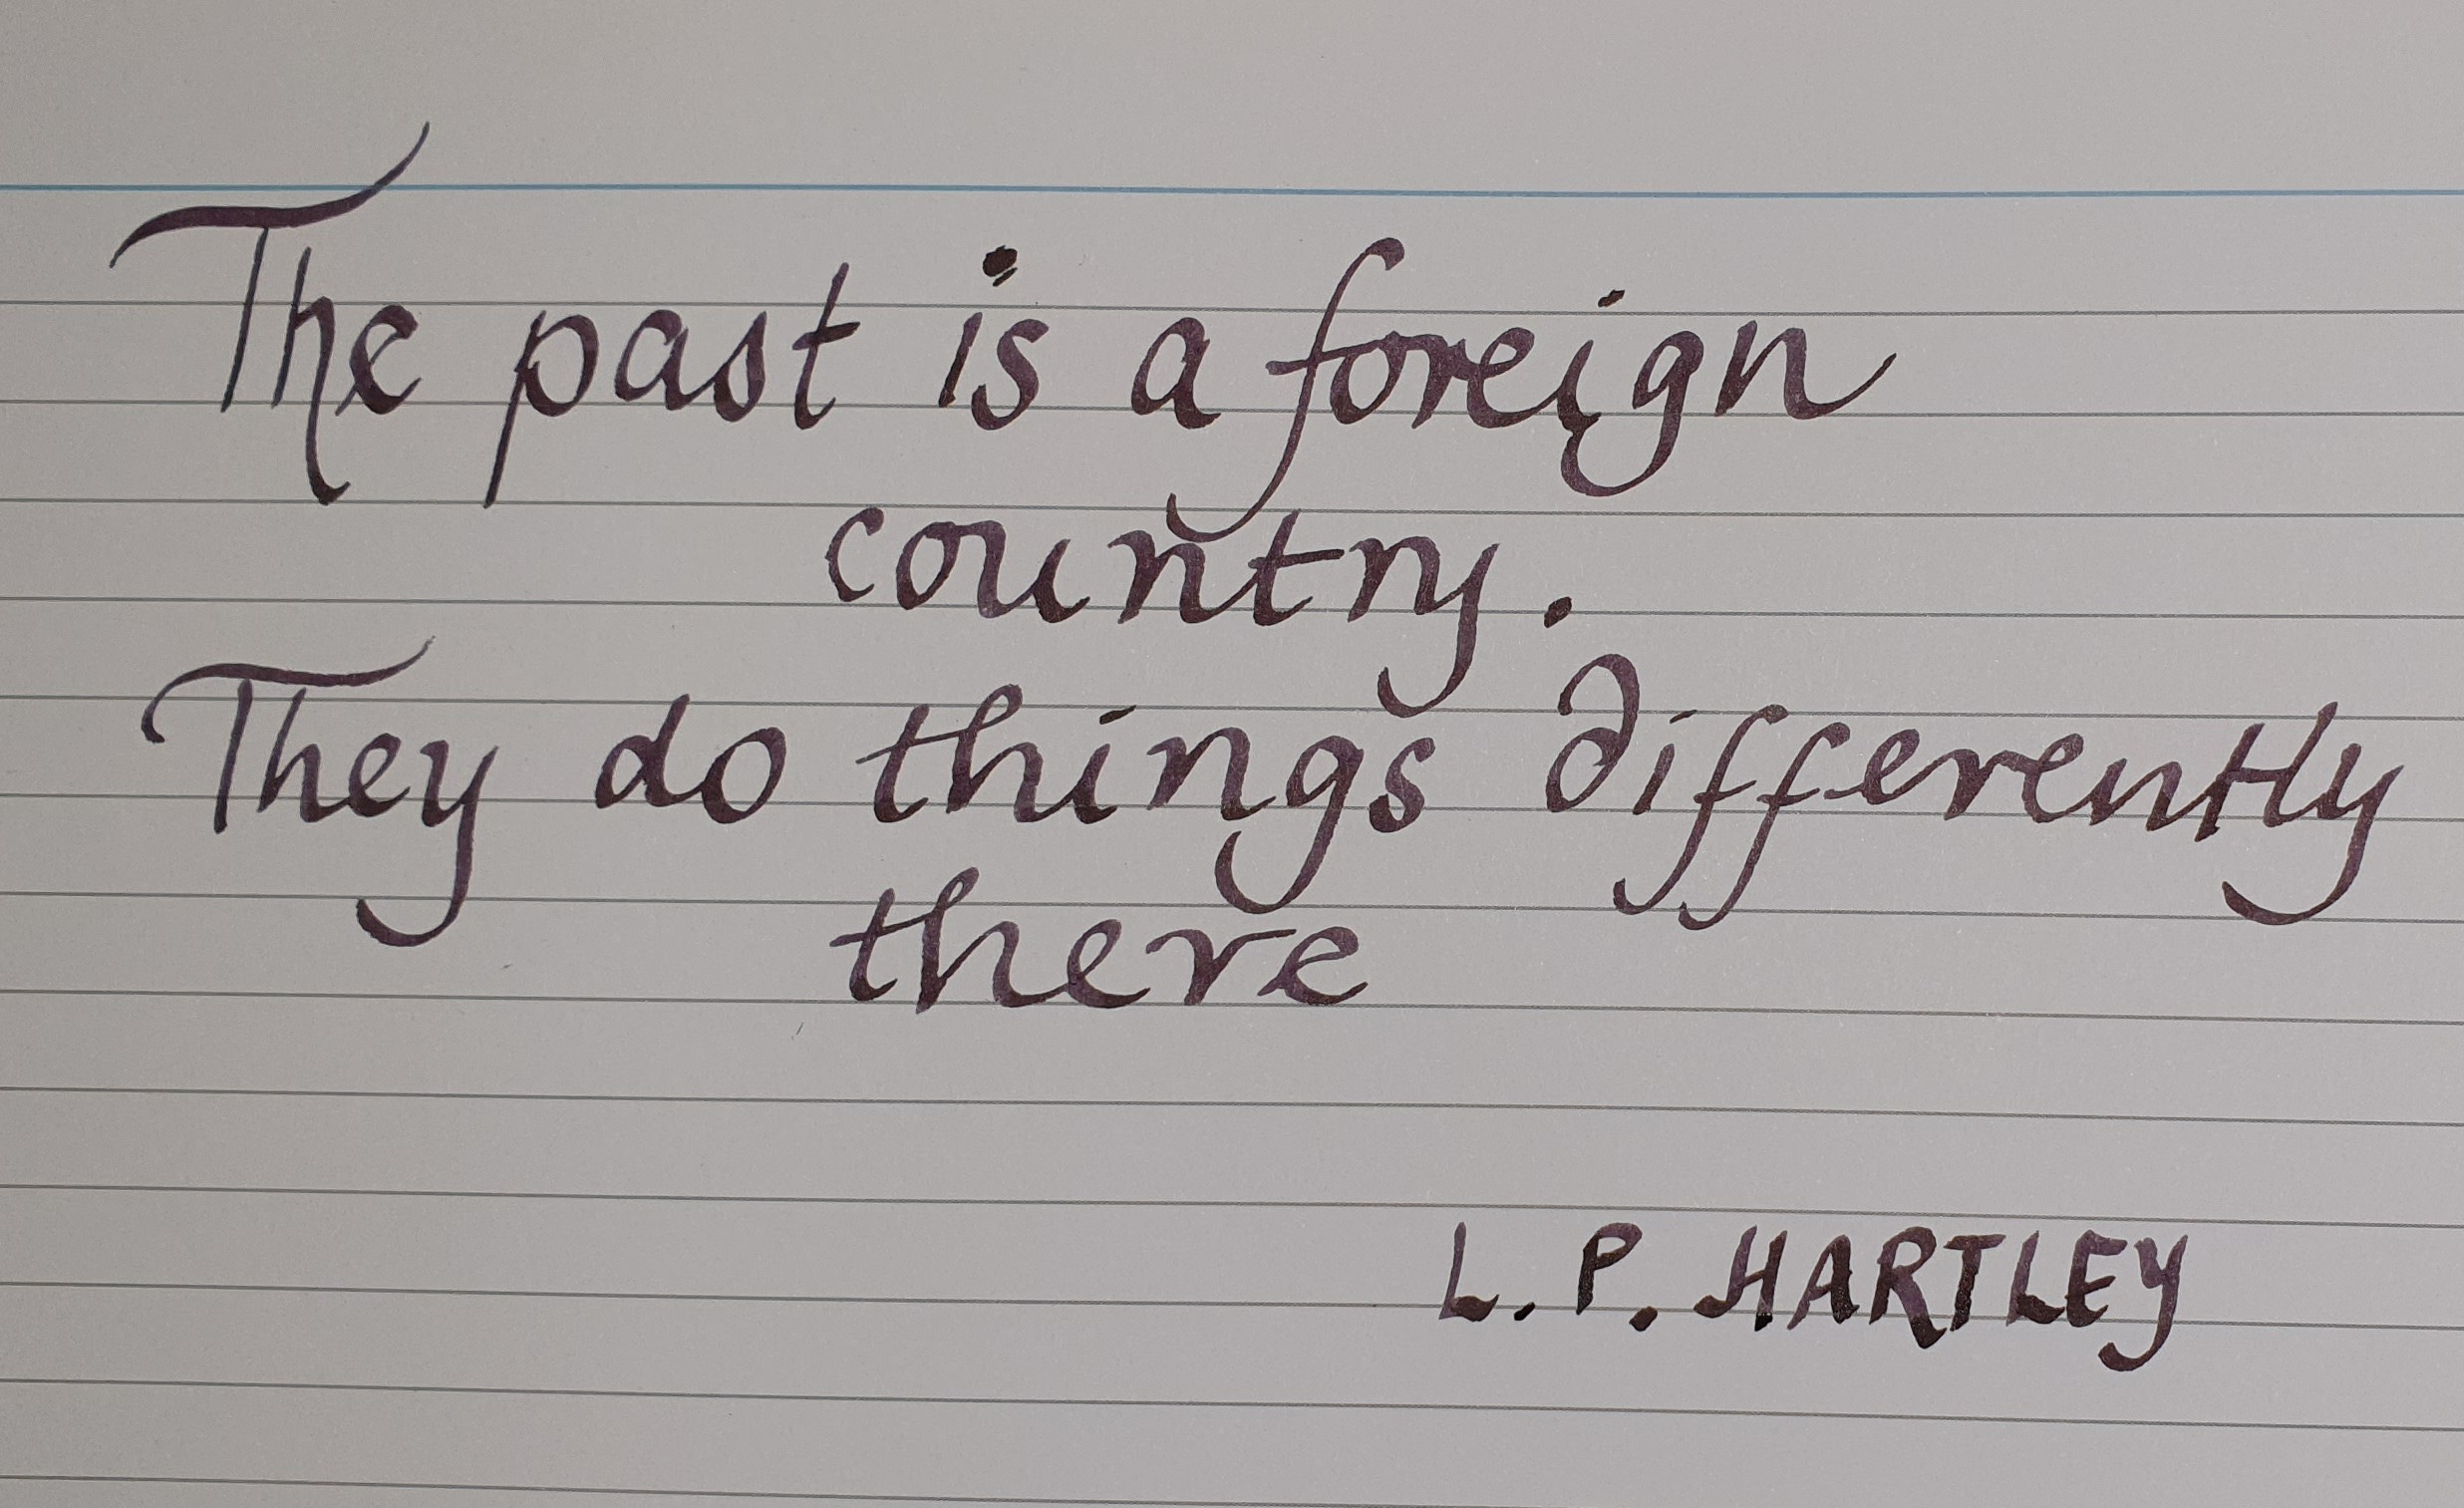 The past is a foreign
country.
They do things differently
there
L. P. HARTLEY